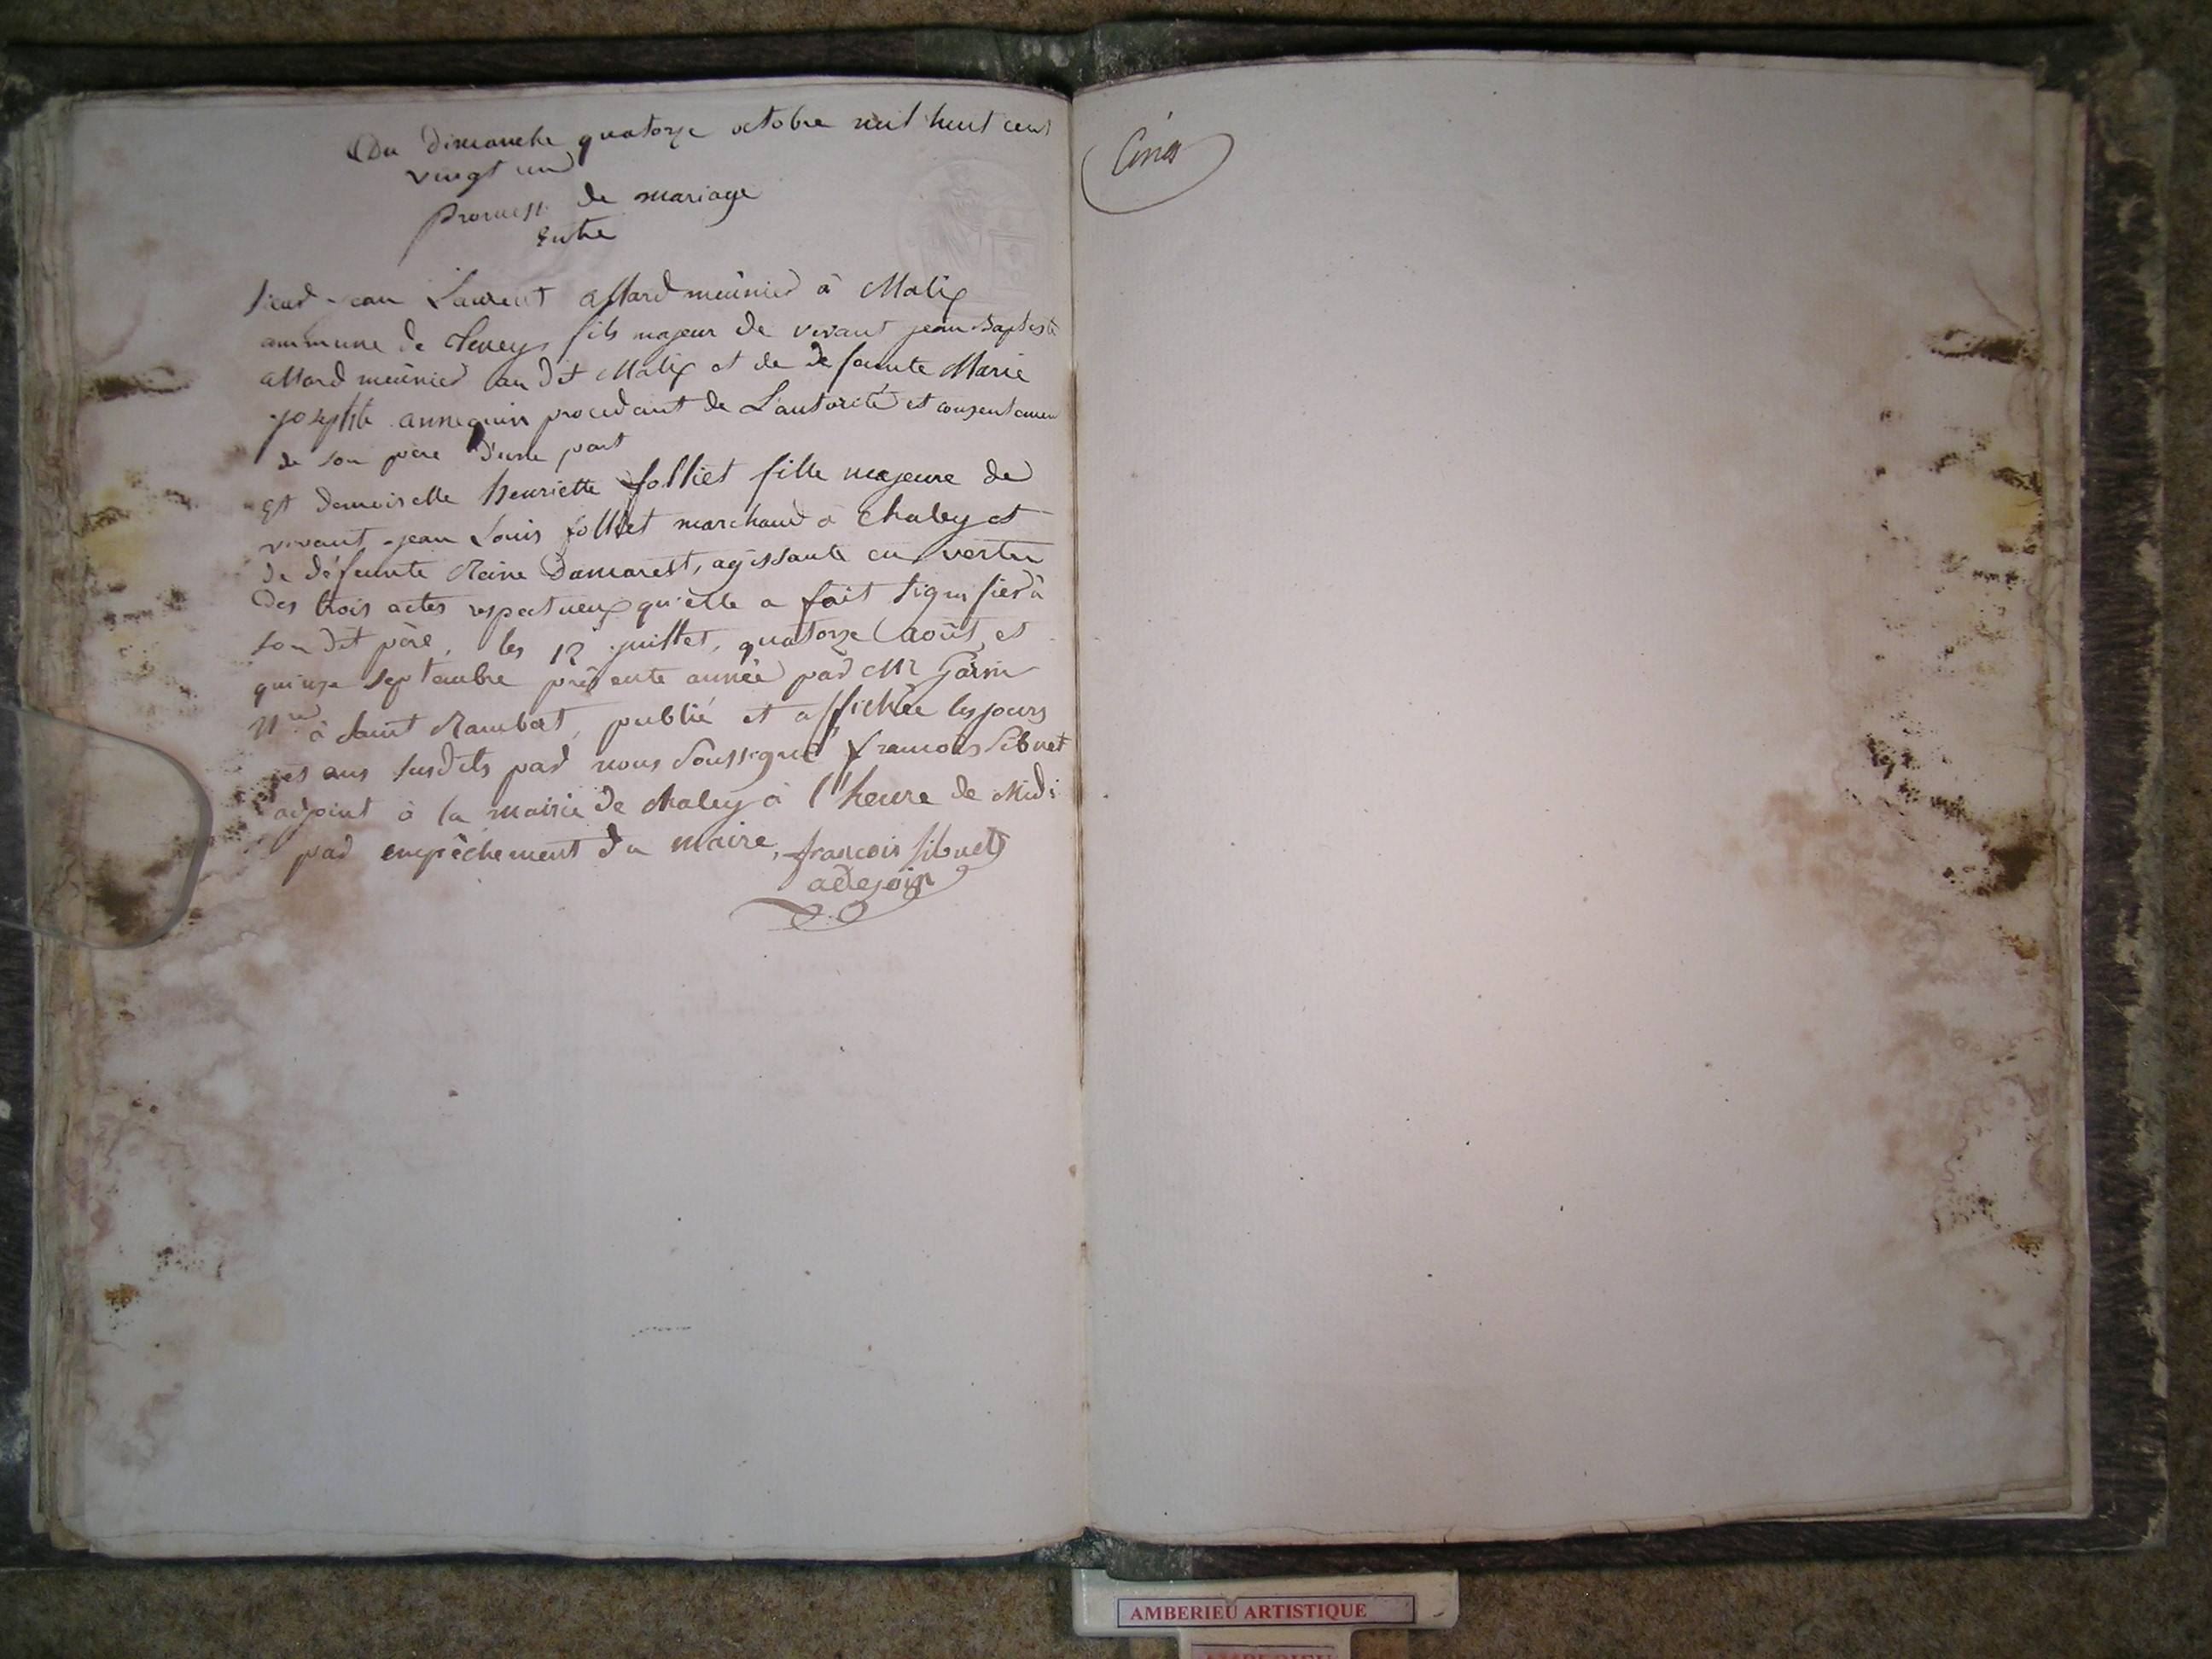 Du dimanche quatorze octobre mil huit cent
vingt un
promesse de mariage
Entre
Jean Laurent allard meûnier à Malix
commune de Tenay fils majeur de vivant jean Baptiste
allard meûnier au dit Malix et de defunte Marie
josephte annequin procedant de L'autorité et consentement
de son père D'une part
Et demoiselle henriette folliet fille majeure de
vivant jean Louis folliet marchand à Chaley et
de défunte Reine Damarest, agissante en vertu
Des trois actes respectueux qu'elle a fait signifier à
son dit père, les 12 juillet, quatorze août et
quinze septembre présente année par Mr Garin
Nre à Saint Rambert, publié et affichée les jours
et ans susdits par nous Soussigné francois Sibuet
adjoint à la mairie de chaley à l'heure de Midi
par empêchement du maire, francois sibuet
adejoin
Cinq
AMBERIEU ARTISTIQUE
AMBERIEU